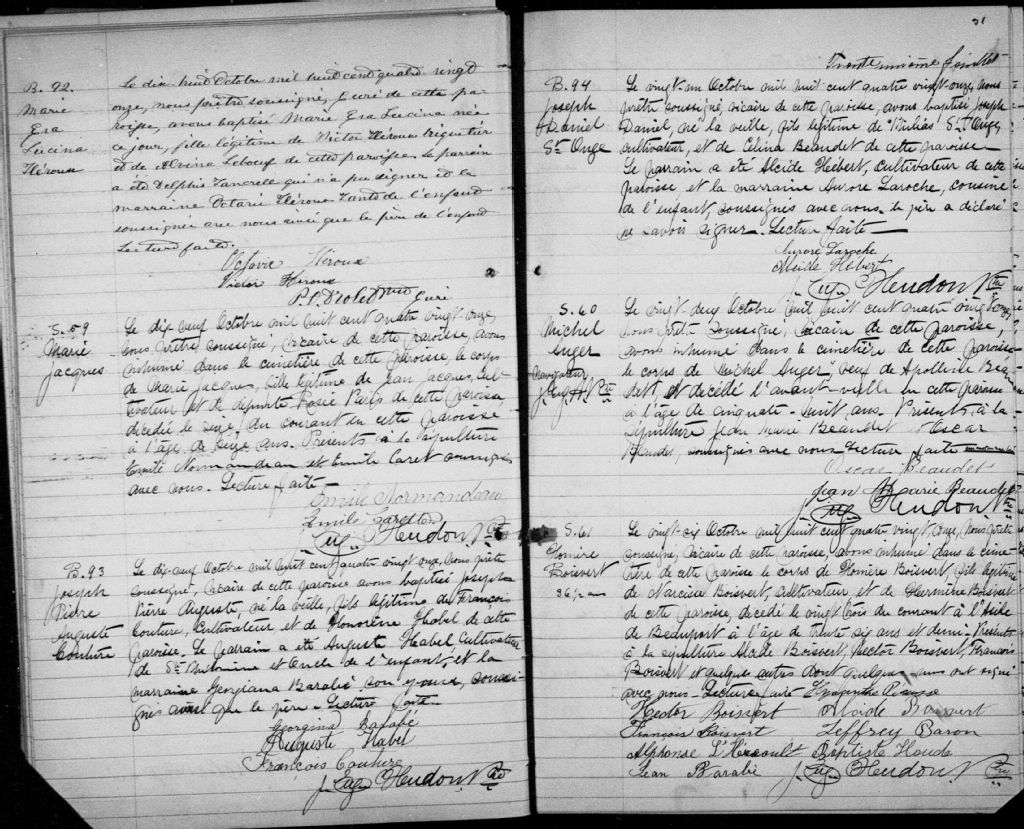 B. 92.
Marie
Eva
Lucina
Héroux
Le dix huit Octobre mil huit cent quatre vingt
onze, nous prêtre soussigné, Curé de cette pa-
roisse, avons baptisé Marie Eva Lucina née
ce jour, fille légitime de Victor Héroux briquetier
et de Alvina Leboeuf de cette paroisse. Le parrain
a été Delphis Lancrelle qui n'a pu signer et la
marraine Octavie Héroux Tante de l'enfant
soussignée avec nous ainsi que le père de l'enfant
Lecture faite.
Octavie Héroux
Victor Heroux
Curé
S. 59
Marie
Jacques
Le dix neuf Octobre mil huit cent quatre vingt onze,
nous prêtre soussigné, vicaire de cette paroisse, avons
inhumé dans le cimetière de cette paroisse le corps
de Marie Jacques, fille légitime de Jean Jacques, Cul-
tivateur et de défunte Rosée Paris de cette paroisse
décédée le seize du courant en cette paroisse
à l'âge de seize ans. Présents à la sépulture
Emile Normandeau et Emile Caret soussignés
avec nous. Lecture faite
Emile Normandeau
Emile
J. Eug. Heudon Ptre
B. 93
Joseph
Pierre
Auguste
Couture
Le dix-neuf Octobre mil huit cent quatre vingt onze, nous prêtre
soussigné, vicaire de cette paroisse avons baptisé Joseph
Pierre Auguste, né la veille, fils légitime de François
Couture, Cultivateur, et de Honorène Habel de cette
paroisse. Le parrain a été Auguste Habel, Cultivateur
de St Antonine et Oncle de l'enfant, et la
marraine Georgiana Barabé son épouse, soussi-
gnés ainsi que le père. Lecture faite.
Georgina Barabé
Auguste Habel
François Couture
J. Eug. Heudon Ptre
31
Trente unième feuillet
B. 94
Joseph
Daniel
St Onge
Le vingt-un Octobre mil huit cent quatre vingt-onze, nous
prêtre soussigné, vicaire de cette paroisse, avons baptisé Joseph
Daniel, né la veille, fils légitime de Milias St Onge,
cultivateur, et de Célina Beaudet de cette paroisse
Le parrain a été Alcide Hébert, Cultivateur de cette
paroisse et la marraine Aurore Laroche, cousine
de l'enfant, soussignés avec nous. Le père a déclaré
ne savoir signer. Lecture faite
Aurore Laroche
Alcide Hébert
J. Eug. Heudon Ptre
S. 60
Michel
Auger
Navigateur
J. Eug. H. Ptre
Le vingt-deux Octobre mil huit cent quatre vingt onze
nous prêtre soussigné, vicaire de cette paroisse,
avons inhumé dans le cimetière de cette paroisse
le corps de Michel Auger, veuf de Apolline Beau-
det, et décédé l'avant-veille en cette paroisse
à l'âge de cinquante-huit ans. Présents à la
sépulture Jean Marie Beaudet et Oscar
Beaudet, soussignés avec nous. Lecture faite
Oscar Beaudet
Jean Marie Beaudet
J. Eug. Heudon Ptre
S. 61
Homère
Boisvert
36½ an
Le vingt-six Octobre mil huit cent quatre vingt onze, nous prêtre
soussigné, vicaire de cette paroisse, avons inhumé dans le cime-
tière de cette paroisse le corps de Homère Boisvert, fils légitime
de Narcisse Boisvert, Cultivateur et de Hermine Boisvert
de cette paroisse, décédé le vingt trois du courant à l'Asile
de Beauport à l'âge de trente six ans et demi. Présents
à la sépulture Alcide Boisvert, Hector Boisvert, François
Boisvert et quelques autres dont quelques uns ont signé
avec nous. Lecture faite
Hector Boisvert Alcide Boisvert
François Boisvert Jeffrey Baron
Alphonse L'Hérault Baptiste Houde
Jean Barabé J. Eug. Heudon Ptre